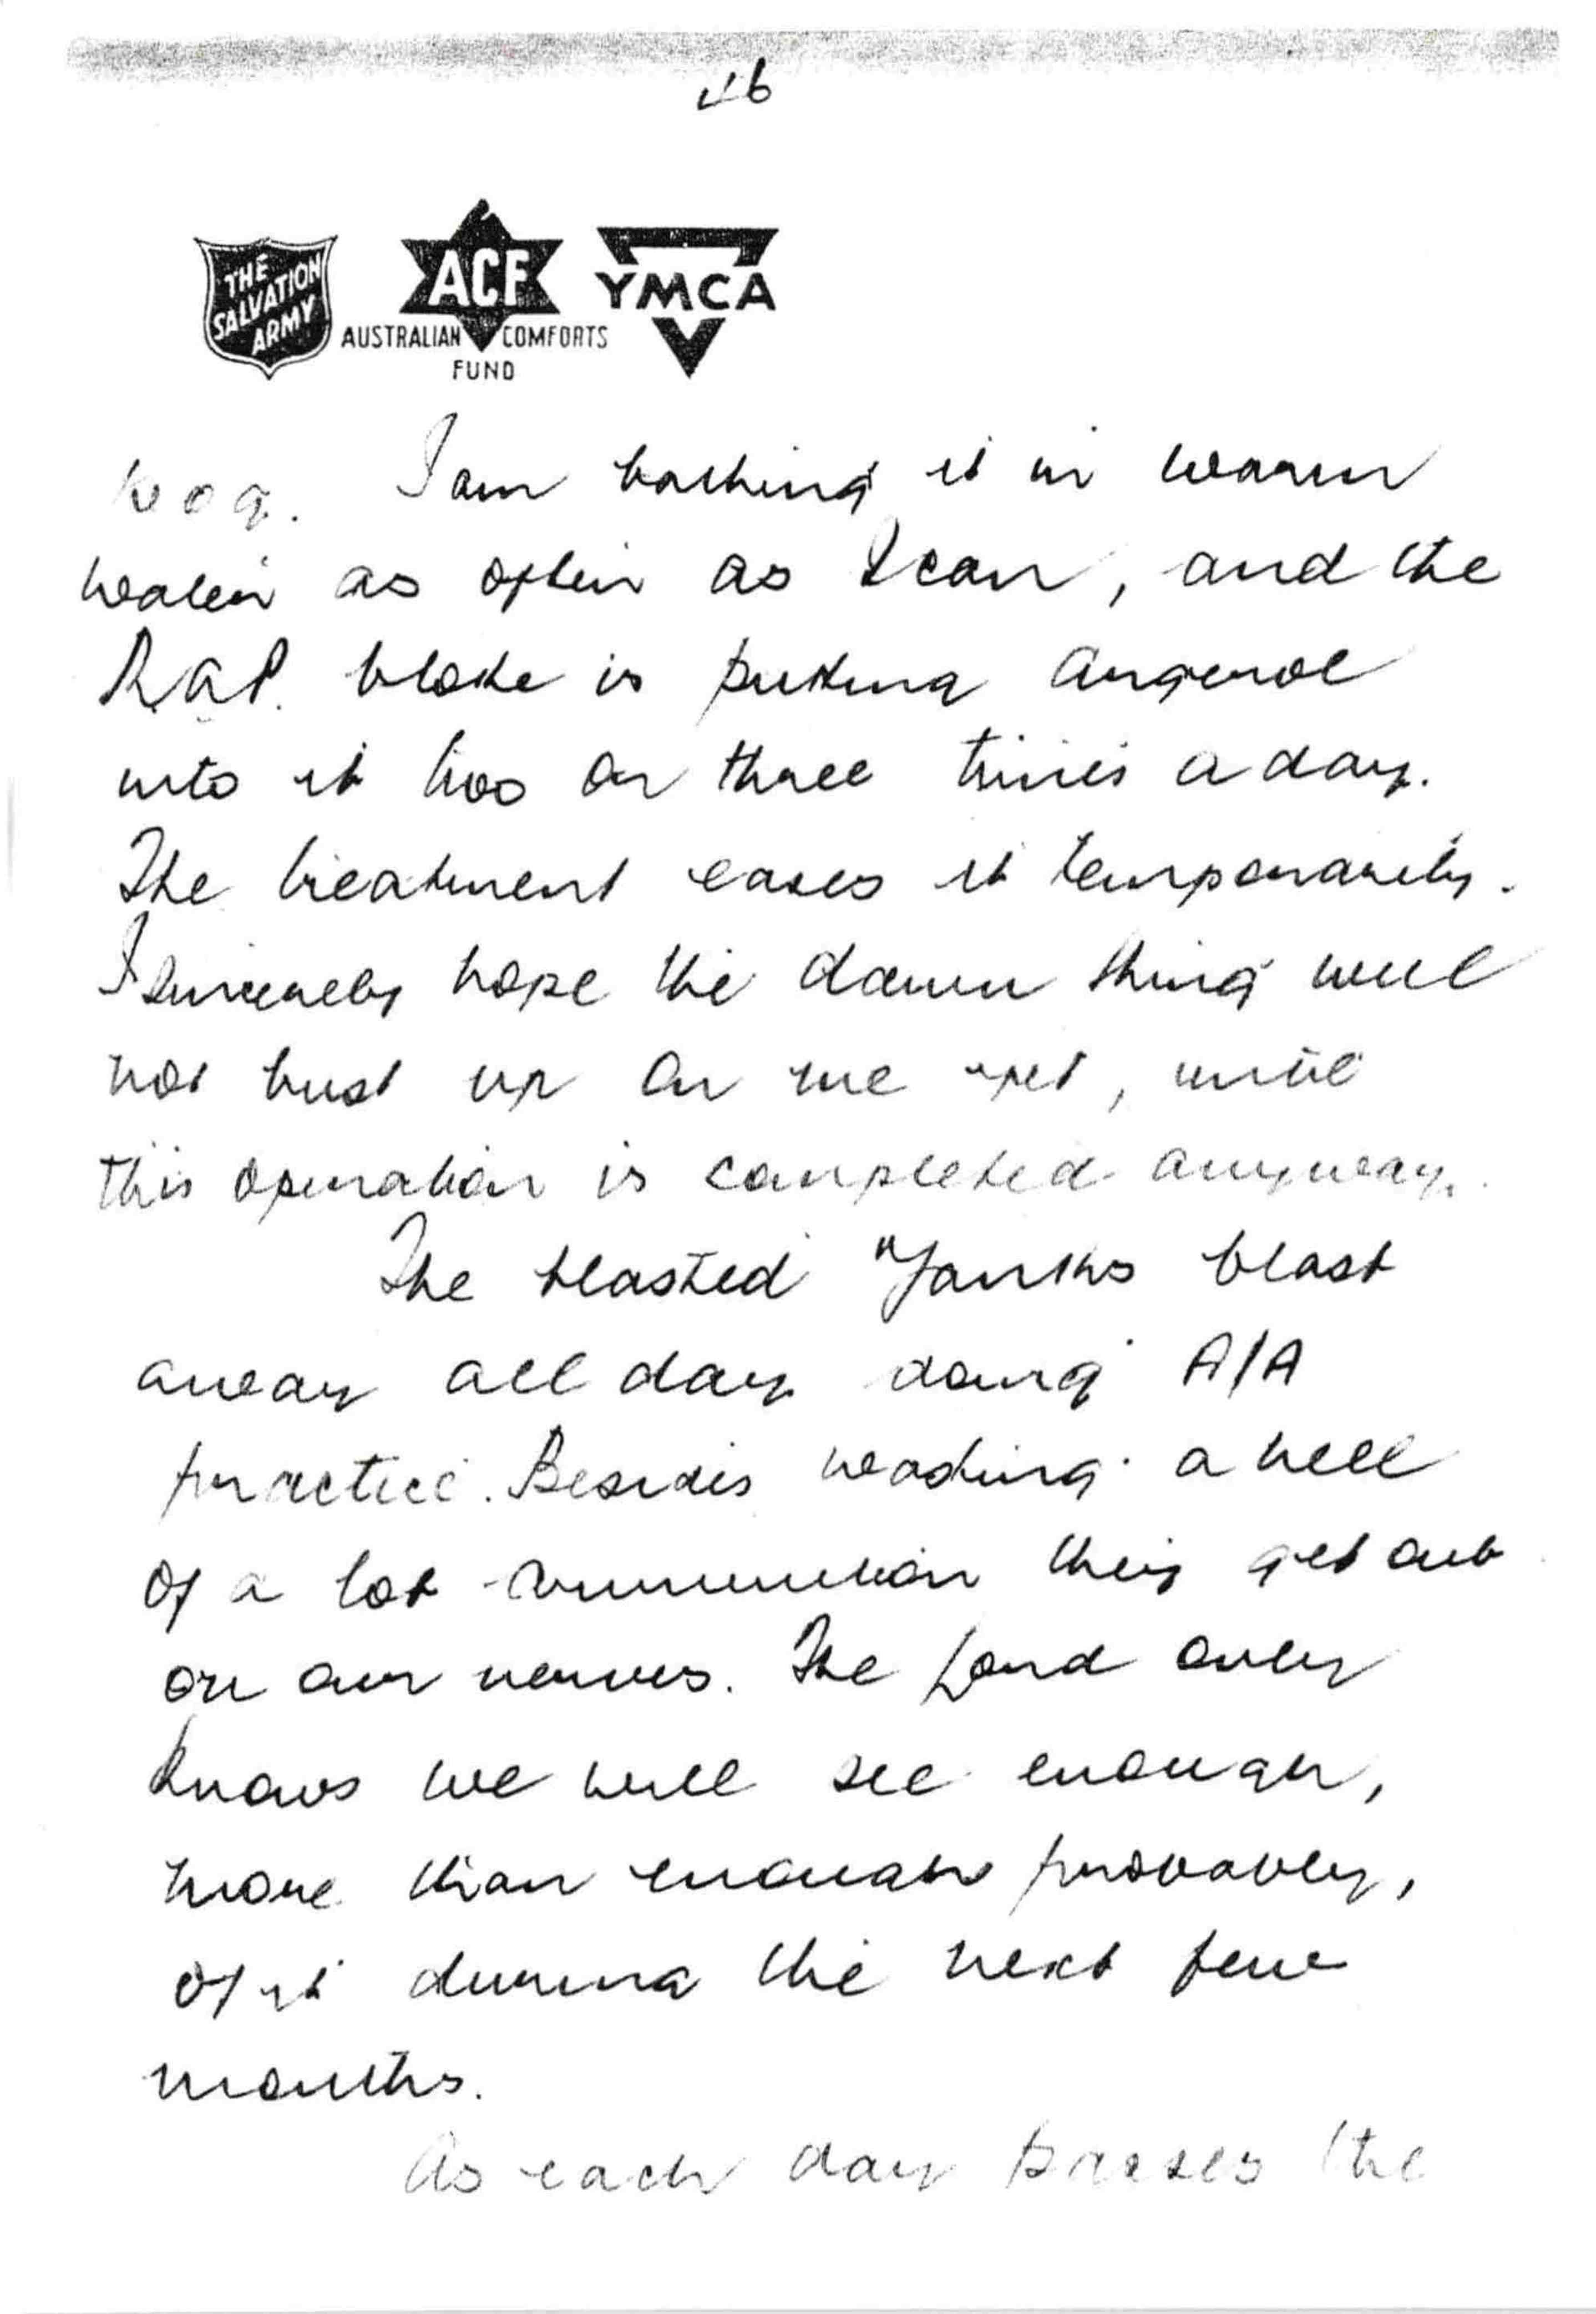 46
THE SALVATION ARMY
ACF
AUSTRALIAN COMFORTS
FUND
YMCA
wog. I am bathing it in warm
water as often as I can, and the
R.A.P. bloke is putting Argerol
into it two or three times a day.
The treatment eases it temporarily.
I sincerely hope the damn thing will
not bust up on me yet, until
this operation is completed anyway.
The blasted "Yanks blast
away all day doing A/A
practice. Besides wasting a hell
of a lot ammunition they get out
on our nerves. The Lord only
knows we will see enough,
more than enough probably,
of it during the next few
months.
As each day passes the